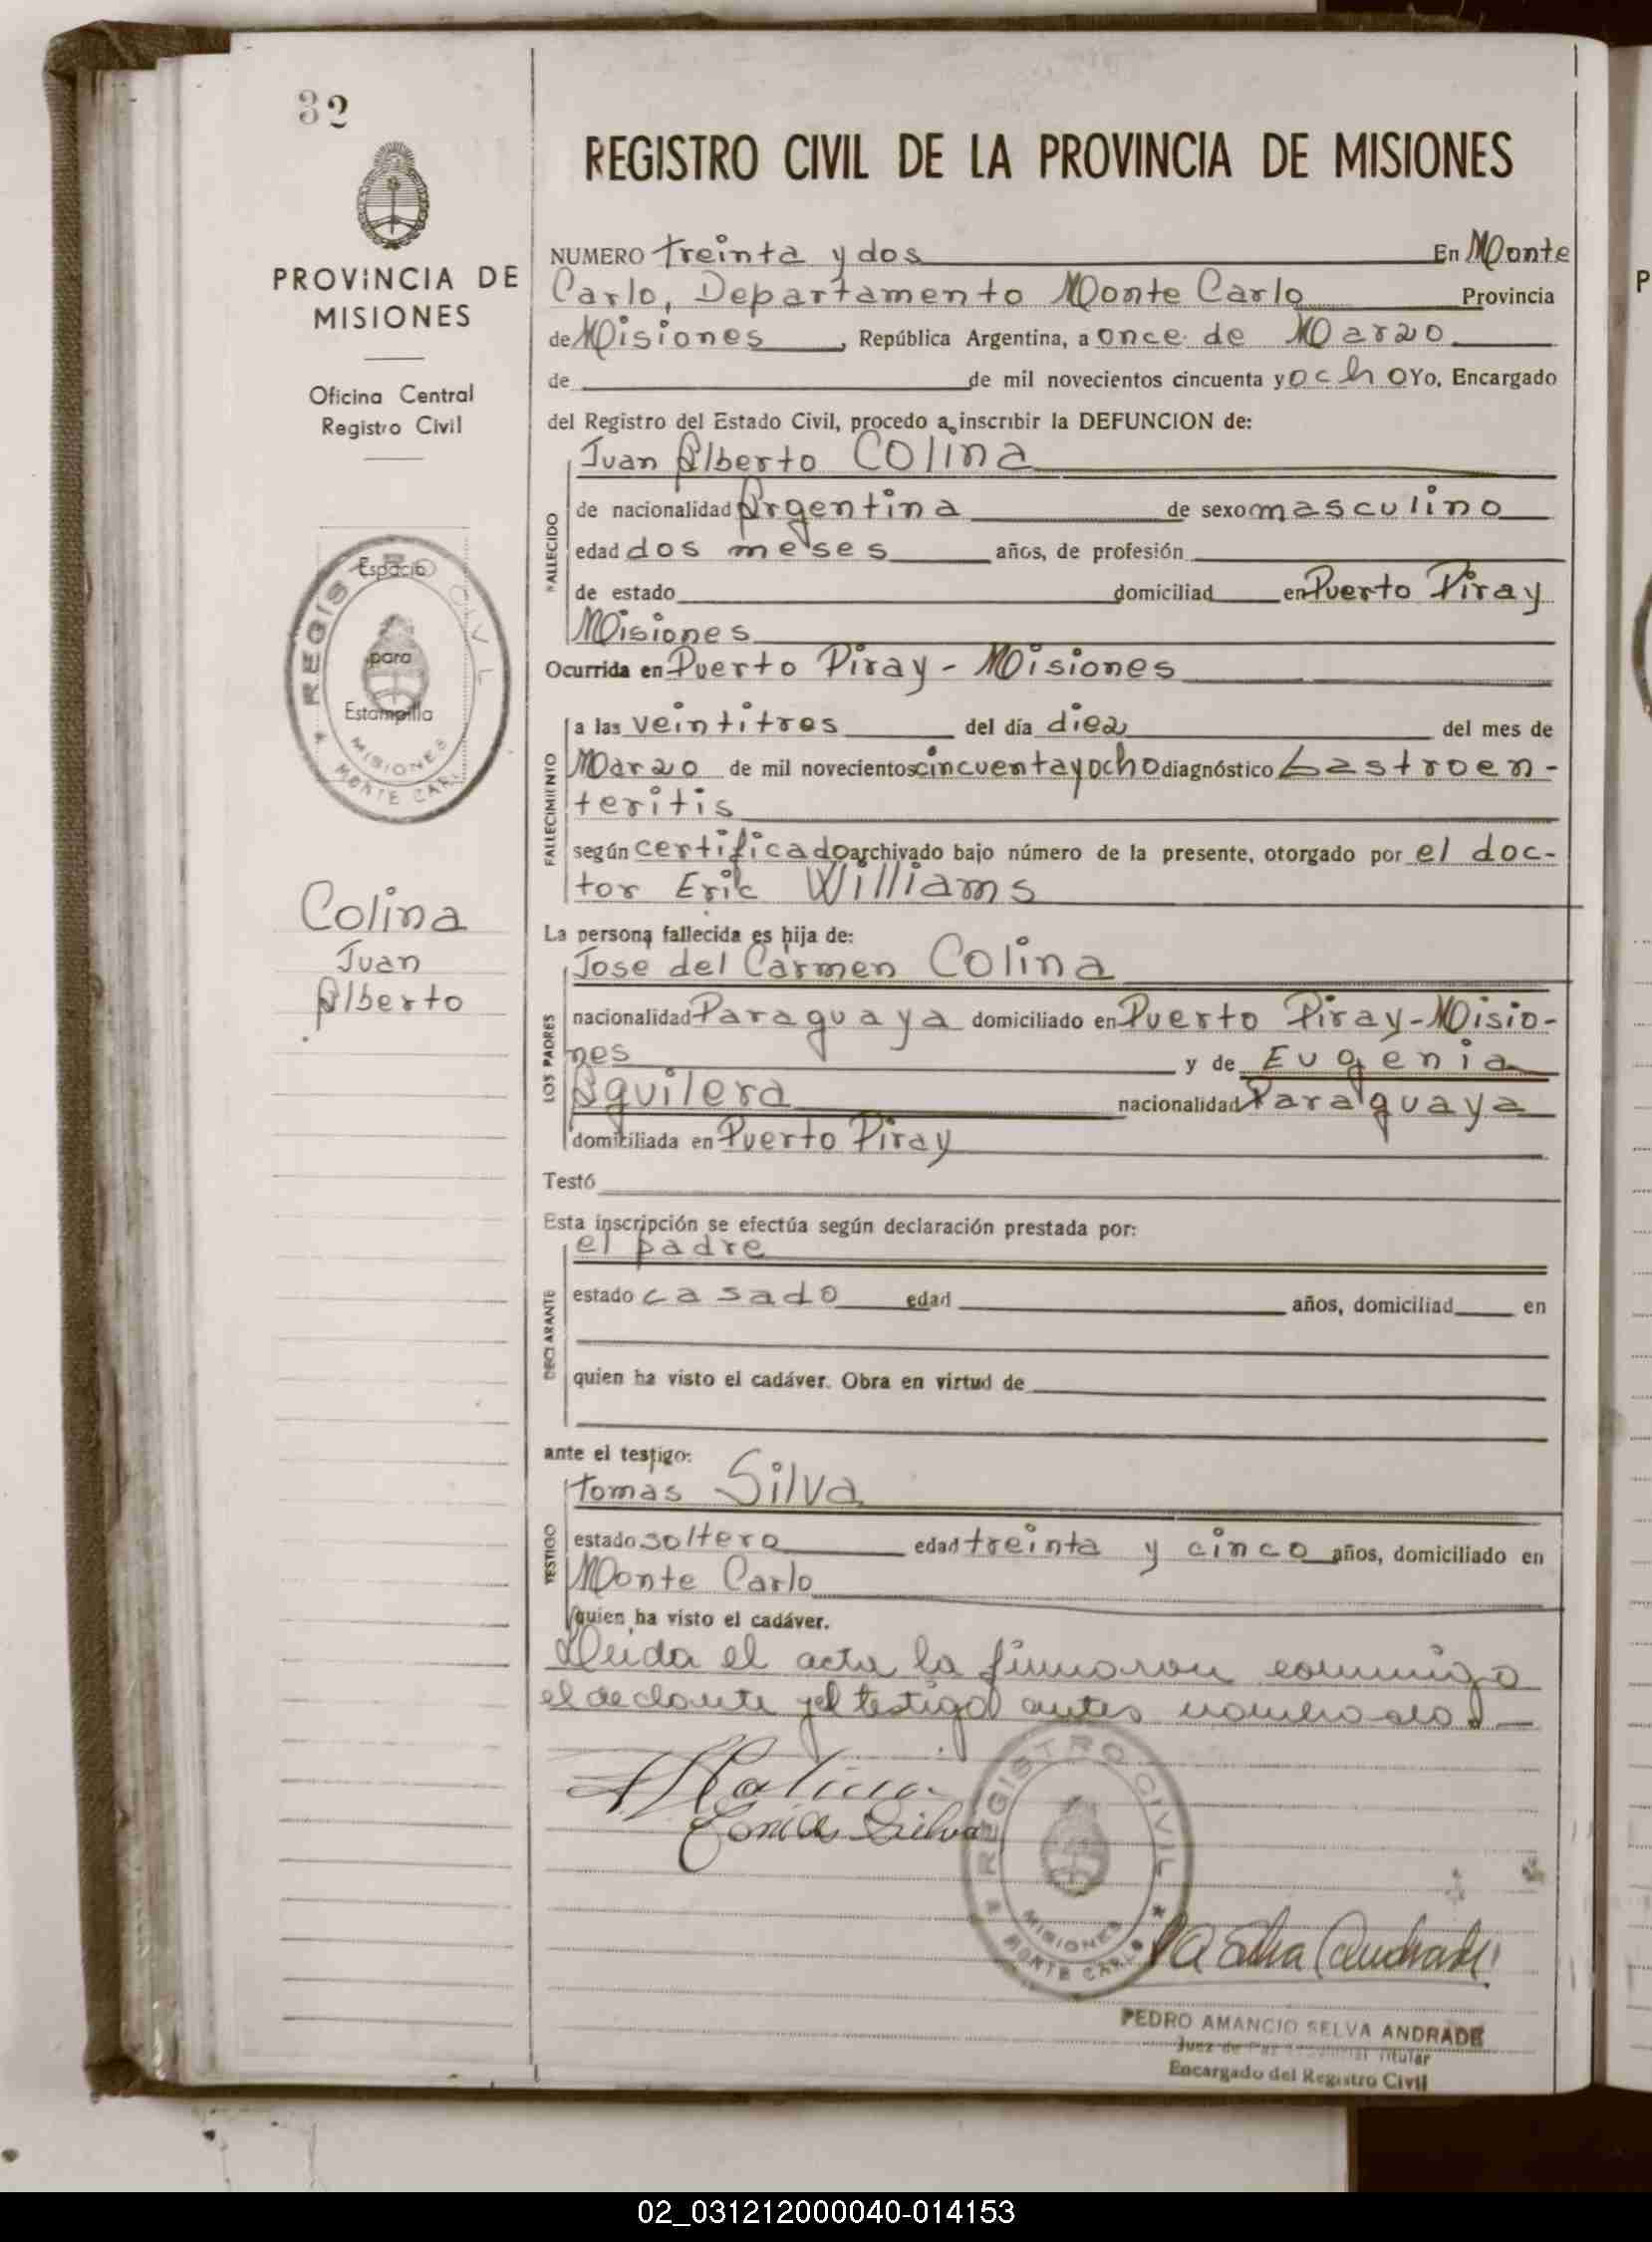 32
PROVINCIA DE
MISIONES
Oficina Central
Registro Civil
Espacio
para
Estampilla
REGISTRO CIVIL
MISIONES
MONTE CARLO
Colina
Juan
Alberto
REGISTRO CIVIL DE LA PROVINCIA DE MISIONES
NUMERO treinta y dos En Monte
Carlo, Departamento Monte Carlo Provincia
de Misiones, República Argentina, a once de Marzo
de de mil novecientos cincuenta y ocho Yo, Encargado
del Registro del Estado Civil, procedo a inscribir la DEFUNCION de:
Juan Alberto Colina
FALLECIDO
de nacionalidad Argentina de sexo masculino
edad dos meses años, de profesión
de estado domiciliad en Puerto Piray
Misiones
Ocurrida en Puerto Piray - Misiones
FALLECIMIENTO
a las veintitres del día diez del mes de
Marzo de mil novecientos cincuenta y ocho diagnóstico Gastroen-
teritis
según certificado archivado bajo número de la presente, otorgado por el doc-
tor Eric Williams
La persona fallecida es hija de:
LOS PADRES
Jose del Carmen Colina
nacionalidad Paraguaya domiciliado en Puerto Piray-Misio-
nes y de Eugenia
Aguilera nacionalidad Paraguaya
domiciliada en Puerto Piray
Testó
Esta inscripción se efectúa según declaración prestada por:
DECLARANTE
el padre
estado casado edad años, domiciliad en
quien ha visto el cadáver. Obra en virtud de
ante el testigo:
TESTIGO
tomas Silva
estado soltero edad treinta y cinco años, domiciliado en
Monte Carlo
quien ha visto el cadáver.
Leida el acta la firmaron conmigo
el declarante y el testigo antes nombrados.-
Colina
Tomas Silva
REGISTRO CIVIL
MISIONES
MONTE CARLO
P A Selva Andrade
PEDRO AMANCIO SELVA ANDRADE
Juez de Paz Titular
Encargado del Registro Civil
P
02_031212000040-014153